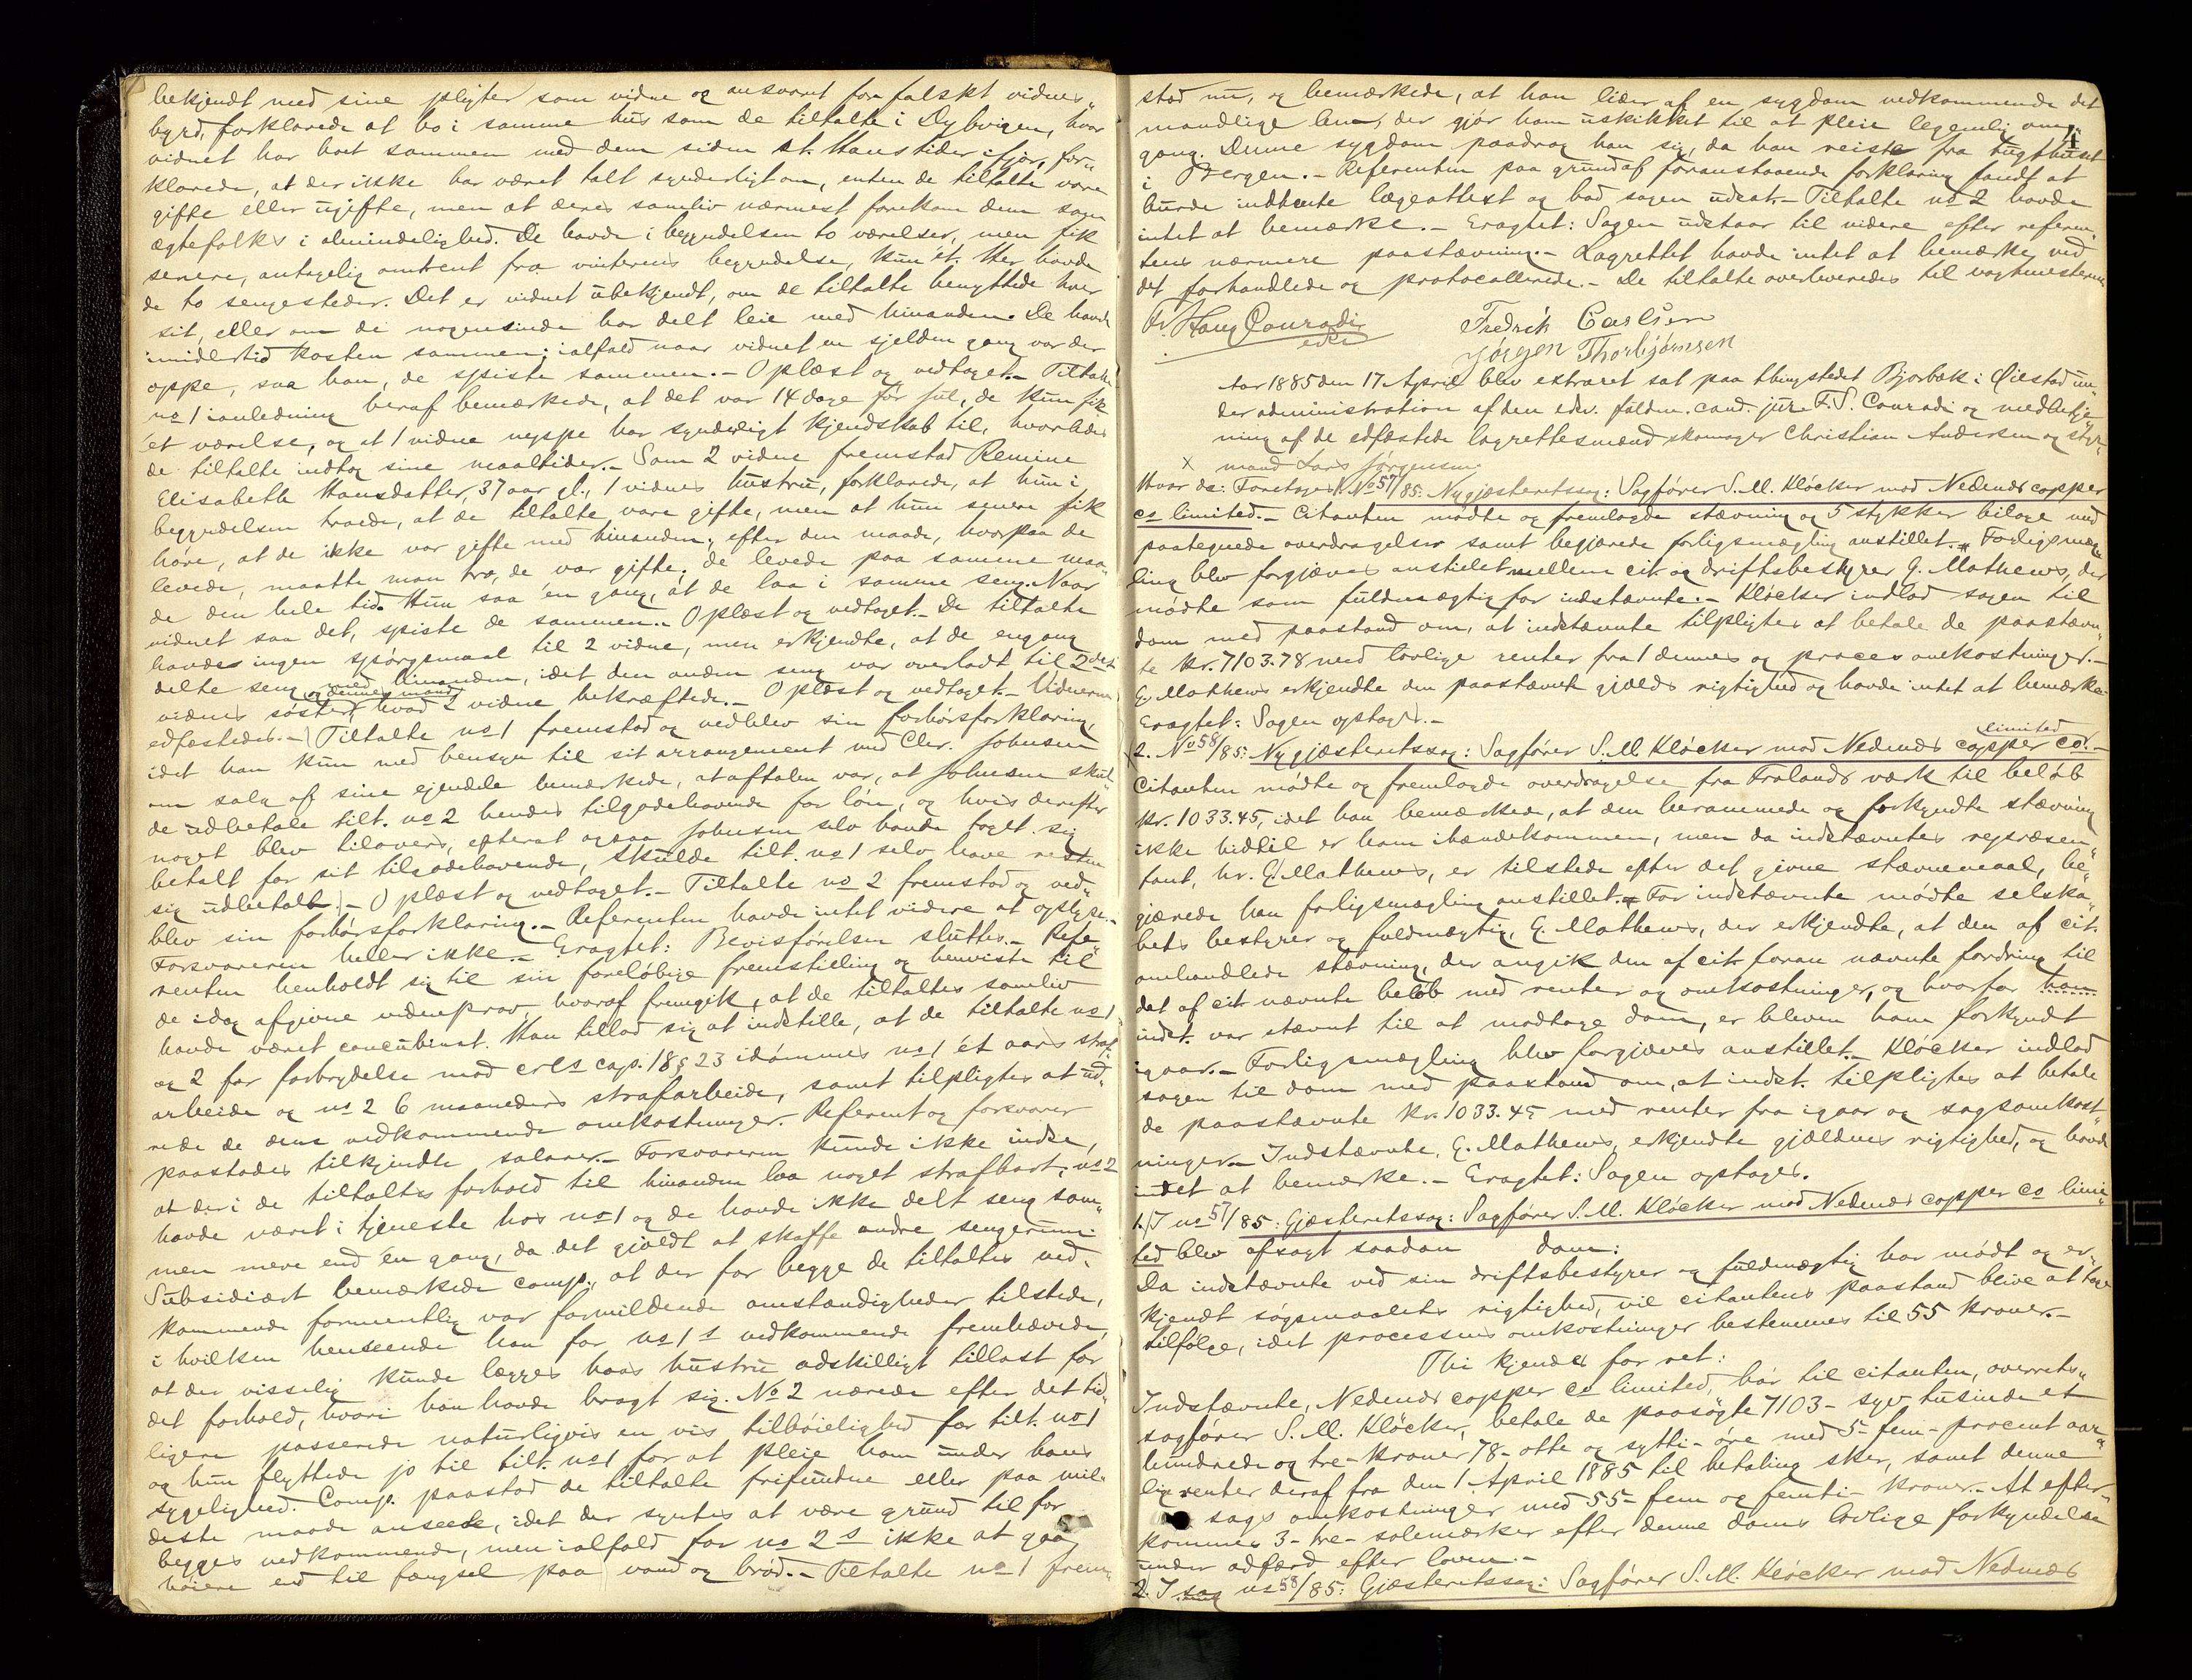 bekjendt med sine pligter som vidne og ansvaret for falskt vidnes„
byrd, forklarede at bo i samme hus som de tiltalte i Dybvigen, hvor
vidnet har boet sammen med dem siden st. Hans tider ifjor, for„
klarede, at der ikke har været talt synderligt om, enten de tiltalte vare
gifte eller ugifte, men at deres samliv nærmest forekom dem som
ægtefolks i almindelighed. De havde i begyndelsen to værelser, men fik
senere, antagelig omtrent fra vinterens begyndelse, kun ét. Her havde
de to sengesteder. Det er vidnet ubekjendt, om de tiltalte benyttede hver
sit, eller om de nogensinde har delt leie med hinanden. De havde
imidlertid kosten sammen; ialfald naar vidnet en sjelden gang var der
oppe, saa han, de spiste sammen. – Oplæst og vedtaget. – Tiltalte
no 1 i anledning heraf bemærkede, at det var 14 dage før jul, de kun fik
ét værelse, og at 1 vidne neppe har synderligt kjendskab til, hvorledes
de tiltalte indtog sine maaltider. – Som 2 vidne fremstod Remine
Elisabeth Hansdatter, 37 aar gl., 1 vidnes hustru, forklarede, at hun i
begyndelsen troede, at de tiltalte vare gifte, men at hun senere fik
høre, at de ikke var gifte med hinanden; efter den maade, hvorpaa de
levede, maatte man tro, de var gifte; de levede paa samme maa„
de den hele tid. Hun saa én gang, at de laa i samme seng. Naar
vidnet saa det, spiste de sammen. – Oplæst og vedtaget. – De tiltalte
havde ingen spørgsmaal til 2 vidne, men erkjendte, at de engang
delte seng med hinanden, idet den anden seng var overladt til 2det
vidnes søster og dennes mand, hvad 2 vidne bekræftede. – Oplæst og vedtaget. – Vidnerne
edfæstedes. – Tiltalte no 1 fremstod og vedblev sin forhørsforklaring,
idet han kun med hensyn til sit arrangement med Chr. Johnsen
om salg af sine eiendele bemærkede, at aftalen var, at Johnsen skul„
de udbetale tilt. no 2 hendes tilgodehavende for løn, og hvis derefter
noget blev tilovers, efterat ogsaa Johnsen selv havde taget sig
betalt for sit tilgodehavende, skulde tilt. no 1 selv have resten
sig udbetalt. – Oplæst og vedtaget. – Tiltalte no 2 fremstod og ved„
blev sin forhørsforklaring. – Referenten havde intet videre at oplyse. –
Forsvareren heller ikke. – Eragtet: Bevisførelsen sluttes. – Refe„
renten henholdt sig til sin foreløbige fremstilling og henviste til
de idag afgivne vidneprov, hvoraf fremgik, at de tiltaltes samliv
havde været concubinat. Han tillod sig at indstille, at de tiltalte no 1
og 2 for forbrydelse mod crls cap. 18 § 23 idømmes no 1 ét aars straf„
arbeide og no 2 6 maaneders strafarbeide, samt tilpligtes at ud„
rede de deres vedkommende omkostninger. Referent og forsvarer
paastodes tilkjendte salarer. – Forsvareren kunde ikke indse,
at der i de tiltaltes forhold til hinanden laa noget strafbart; no 2
havde været i tjeneste hos no 1 og de havde ikke delt seng sam„
men mere end én gang, da det gjaldt at skaffe andre sengerum.
Subsidiært bemærkede comp., at der for begge de tiltaltes ved„
kommende formentlig var formildende omstændigheder tilstede,
i hvilken henseende han for no 1s vedkommende fremhævede,
at der visselig kunde lægges hans hustru adskilligt tillast for
det forhold, hvori han havde bragt sig. No 2 nærede efter det tid„
ligere passerede naturligvis en vis tilbøielighed for tilt. no 1
og hun flyttede jo til tilt. no 1 for at pleie ham under hans
sygelighed. Comp. paastod de tiltalte frifundne eller paa mil„
deste maade anseede, idet der syntes at være grund til for
begges vedkommende, men ialfald for no 2s ikke at gaa
høiere end til fængsel paa vand og brød. – Tiltalte no 1 frem„
stod nu, og bemærkede, at han lider af en sygdom vedkommende det
mandlige lem, der gjør ham uskikket til at pleie legemlig om„
gang. Denne sygdom paadrog han sig, da han reiste fra tugthuset
i Bergen. – Referenten paa grund af foranstaaende forklaring fandt at
burde indhente lægeattest og bad sagen udsat. – Tiltalte no 2 havde
intet at bemærke. – Eragtet: Sagen udstaar til videre efter referen„
tens nærmere paastævning. – Lagrettet havde intet at bemærke ved
det forhandlede og protocollerede. – De tiltalte overleveredes til vagtmesteren
Fr. Hang Conradi
edsv
Fredrik Carlsen
Jørgen Thorbjørnsen
Aar 1885 den 17 April blev extraret sat paa thingstedet Bjorbæk i Øiestad un„
der administration af den edsv. fuldm. cand. jur. F. S. Conradi og medbetje„
ning af de edfæstede lagrettesmænd skomager Christian Andersen og styr„
x mand Lars Jørgensen
Hvor da: Foretoges 1. No 57/85: Ny gjæsteretssag: Sagfører S. M. Kløcker mod Nedenæs copper
co limited. – Citanten mødte og fremlagde stævning og 5 stykker bilage med
paategnede overdragelser samt begjærede forligsmægling anstillet. – Forligsmæg„
ling blev forgjæves anstillet mellem cit. og driftsbestyrer G. Mathews, der
mødte som fuldmægtig for indstævnte. – Kløcker indlod sagen til
dom med paastand om, at indstævnte tilpligtes at betale de paastævn„
te kr. 7103.78 med lovlige renter fra 1 dennes og procesomkostninger. –
G. Mathews erkjendte den paastævnte gjælds rigtighed og havde intet at bemærke. –
Eragtet: Sagen optages. –
2. No 58/85: Ny gjæsteretssag: Sagfører S. M. Kløcker mod Nedenæs copper co. limited –
Citanten mødte og fremlagde overdragelse fra Frolands værk til beløb
kr. 1033.45, idet han bemærkede, at den berammede og forkyndte stævning
ikke hidtil er ham ihændekommen, men da indstævntes repræsen„
tant, hr. G. Mathews, er tilstede efter det givne stævnemaal, be„
gjærede han forligsmægling anstillet. – For indstævnte mødte selska„
bets bestyrer og fuldmægtig, G. Mathews, der erkjendte, at den af cit.
omhandlede stævning, der angik den af cit. foran nævnte fordring til
det af cit. nævnte beløb med renter og omkostninger, og hvorfor han
indst. var stævnt til at modtage dom, er bleven ham forkyndt
igaar. – Forligsmægling blev forgjæves anstillet. – Kløcker indlod
sagen til dom med paastand om, at indst. tilpligtes at betale
de paastævnte kr. 1033.45 med renter fra igaar og sagsomkost„
ninger. – Indstævnte, G. Mathews, erkjendte gjældens rigtighed, og havde
intet at bemærke. – Eragtet: Sagen optages.
1. I no 57/85: Gjæsteretssag: Sagfører S. M. Kløcker mod Nedenæs copper co limi„
ted blev afsagt saadan dom:
Da indstævnte ved sin driftsbestyrer og fuldmægtig har mødt og er„
kjendt søgsmaalets rigtighed, vil citantens paastand blive at tage
tilfølge, idet processens omkostninger bestemmes til 55 kroner. –
Thi kjendes for ret:
Indstævnte, Nedenæs copper co limited, bør til citanten, overrets„
sagfører S. M. Kløcker, betale de paasøgte 7103 – syv tusinde et
hundrede og tre – kroner 78 – otte og sytti – øre med 5 – fem – procent aar„
lig renter deraf fra den 1 April 1885 til betaling sker, samt denne
sags omkostninger med 55 – fem og femti – kroner. – At efter„
kommes 3 – tre – solemærker efter denne doms lovlige forkyndelse
under adfærd efter loven. –
2. I sag no 58/85: Gjæsteretssag: Sagfører S. M. Kløcker mod Nedenæs